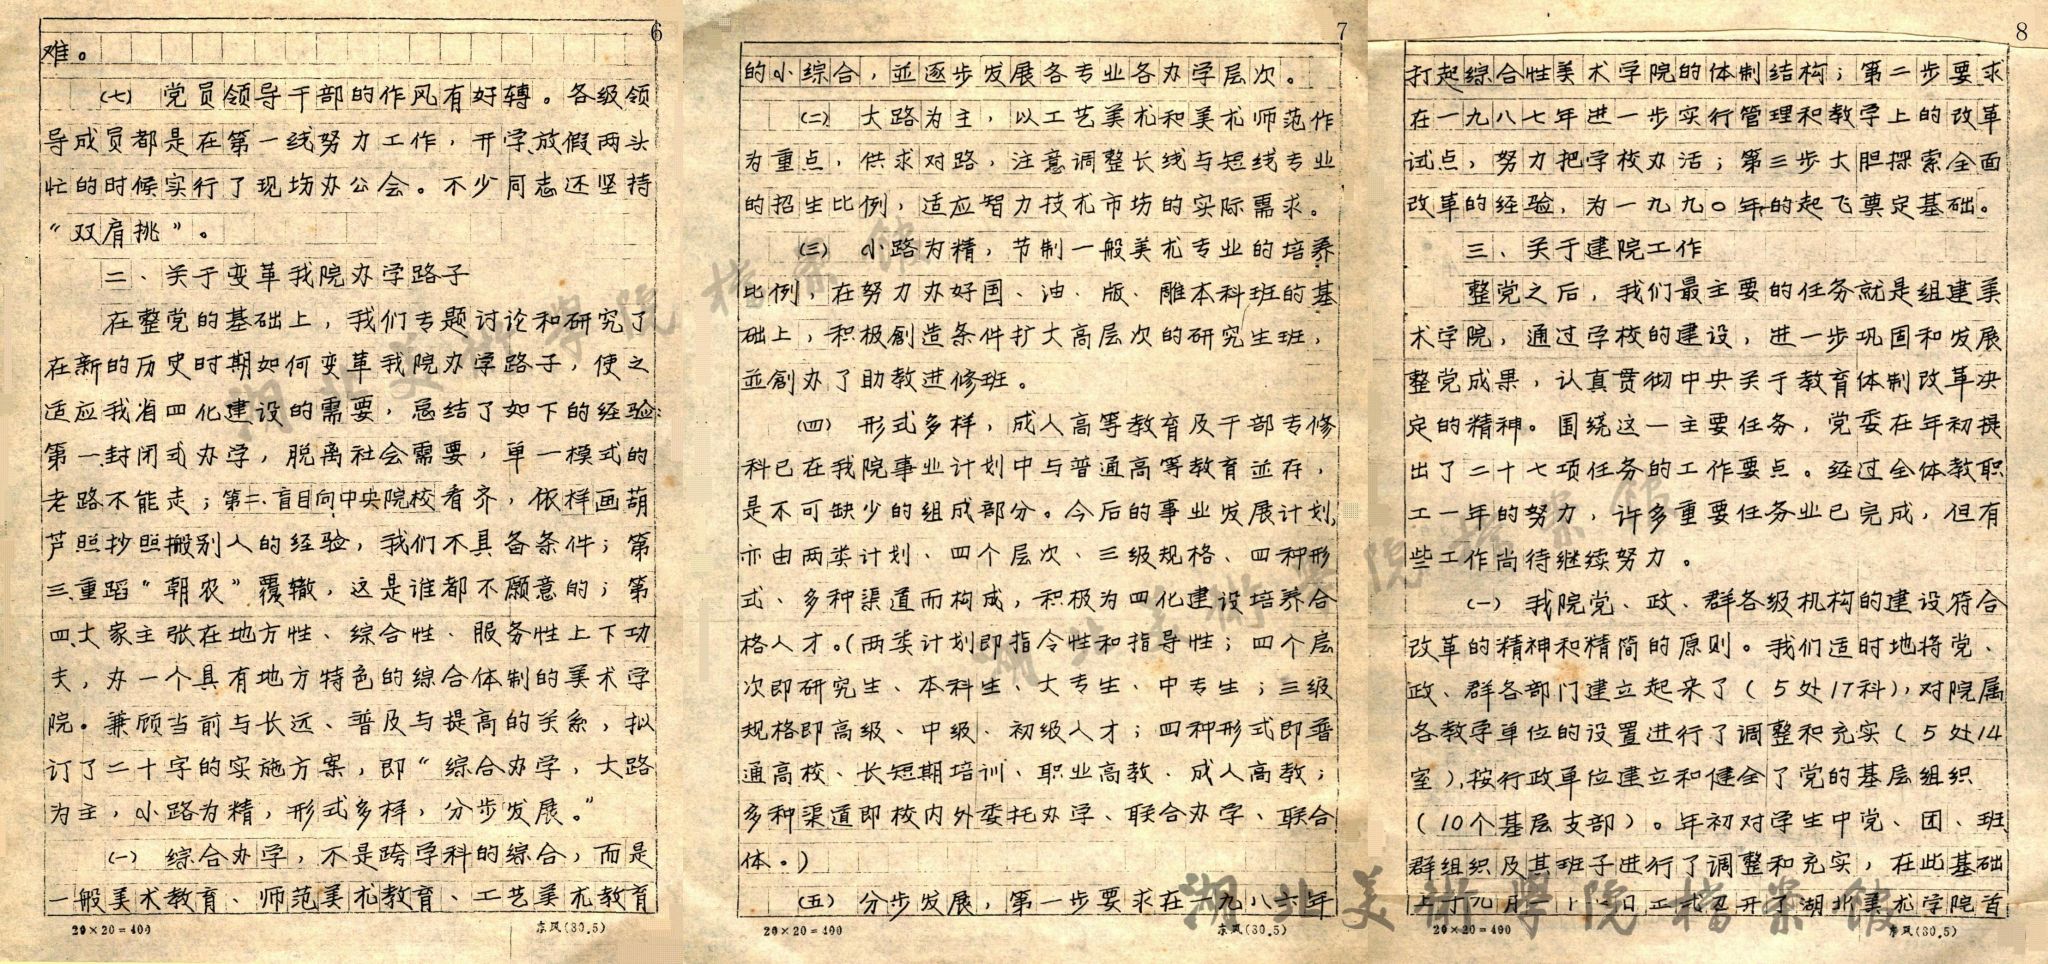 6
难。
(七) 党员领导干部的作风有好转。各级领
导成员都是在第一线努力工作，开学放假两头
忙的时候实行了现场办公会。不少同志还坚持
“双肩挑”。
二、关于变革我院办学路子
在整党的基础上，我们专题讨论和研究了
在新的历史时期如何变革我院办学路子，使之
适应我省四化建设的需要，总结了如下的经验：
第一封闭式办学，脱离社会需要，单一模式的
老路不能走；第二、盲目向中央院校看齐，依样画葫
芦照抄照搬别人的经验，我们不具备条件；第
三重蹈“朝农”覆辙，这是谁都不愿意的；第
四大家主张在地方性、综合性、服务性上下功
夫，办一个具有地方特色的综合体制的美术学
院。兼顾当前与长远、普及与提高的关系，拟
订了二十字的实施方案，即“综合办学，大路
为主，小路为精，形式多样，分步发展。”
(一) 综合办学，不是跨学科的综合，而是
一般美术教育、师范美术教育、工艺美术教育
20×20=400
东风(80.5)
7
的小综合，並逐步发展各专业各办学层次。
(二) 大路为主，以工艺美术和美术师范作
为重点，供求对路，注意调整长线与短线专业
的招生比例，适应智力技术市场的实际需求。
(三) 小路为精，节制一般美术专业的培养
比例，在努力办好国、油、版、雕本科班的基
础上，积极創造条件扩大高层次的研究生班，
並創办了助教进修班。
(四) 形式多样，成人高等教育及干部专修
科已在我院事业计划中与普通高等教育並存，
是不可缺少的组成部分。今后的事业发展计划，
亦由两类计划、四个层次、三级规格、四种形
式、多种渠道而构成，积极为四化建设培养合
格人才。(两类计划即指令性和指导性；四个层
次即研究生、本科生、大专生、中专生；三级
规格即高级、中级、初级人才；四种形式即普
通高校、长短期培训、职业高教、成人高教；
多种渠道即校内外委托办学、联合办学、联合
体。)
(五) 分步发展，第一步要求在一九八六年
20×20=400
东风(80.5)
8
打起综合性美术学院的体制结构；第二步要求
在一九八七年进一步实行管理和教学上的改革
试点，努力把学校办活；第三步大胆探索全面
改革的经验，为一九九〇年的起飞奠定基础。
三、关于建院工作
整党之后，我们最主要的任务就是组建美
术学院，通过学校的建设，进一步巩固和发展
整党成果，认真贯彻中央关于教育体制改革决
定的精神。围绕这一主要任务，党委在年初提
出了二十七项任务的工作要点。经过全体教职
工一年的努力，许多重要任务业已完成，但有
些工作尚待继续努力。
(一) 我院党、政、群各级机构的建设符合
改革的精神和精简的原则。我们适时地将党、
政、群各部门建立起来了（5处17科），对院属
各教学单位的设置进行了调整和充实（5处14
室），按行政单位建立和健全了党的基层组织
（10个基层支部）。年初对学生中党、团、班、
群组织及其班子进行了调整和充实，在此基础
上于元月 日正式召开了湖北美术学院首
20×20=400
东风(80.5)
湖北美术学院档案馆
湖北美术学院档案馆
湖北美术学院档案馆